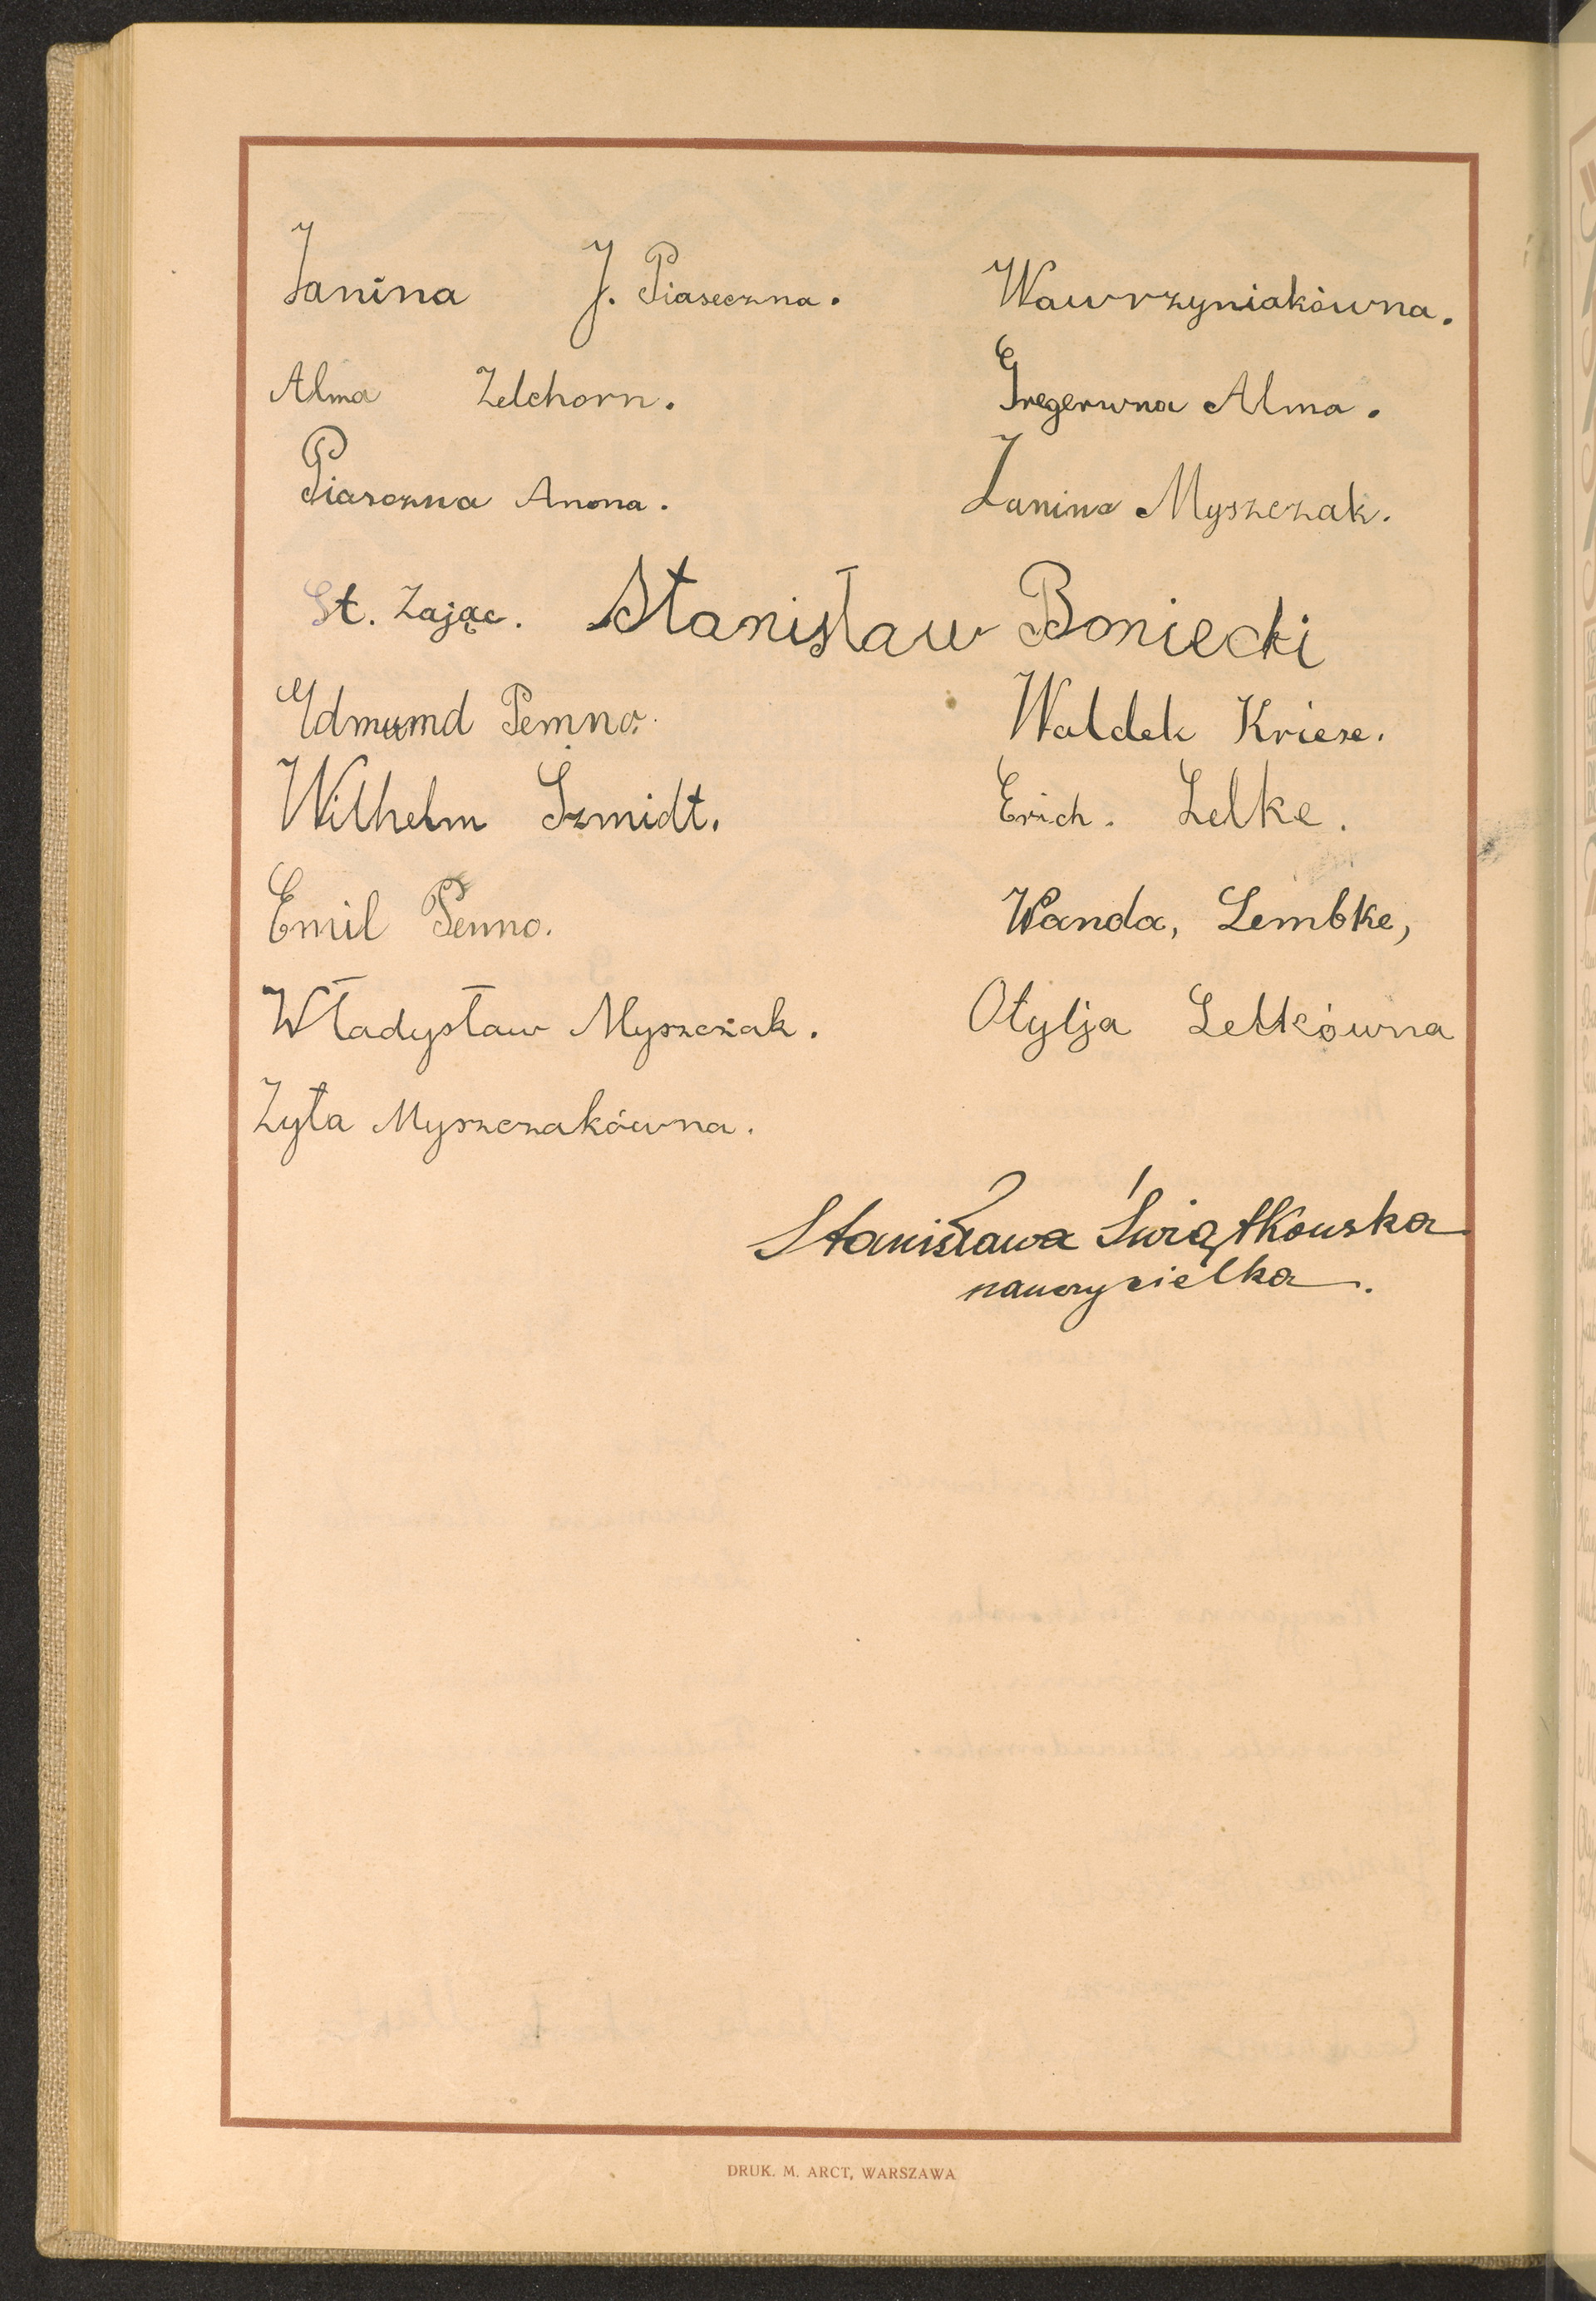 Janina J. Piaseczna. Wawrzyniakówna.
Alma Zelchorn. Gregerwna Alma.
Piasczna Anona. Janina Myszczak.
St. Zając. Stanisław Boniecki
Edmumd Pemno. Waldek Kriese.
Wilhelm Szmidt. Erich. Lelke.
Emil Penno. Wanda, Lembke,
Władysław Myszczak. Otylja Letkówna
Zyta Myszczakówna.
Stanisława Świątkowska
nauczycielka.
DRUK. M. ARCT, WARSZAWA